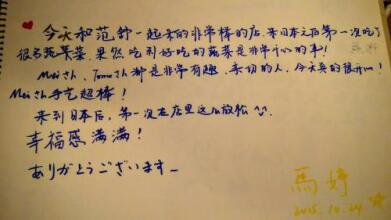 今天和范舒一起来的非常棒的店，来日本之后第一次吃了
很多蔬菜，果然吃到好吃的蔬菜是非常开心的事！
Meiさん、Tomoさん都是非常有趣、亲切的人，今天真的很开心！
Meiさん手艺超棒！
来到日本后，第一次在店里这么放松^^
幸福感满满！
ありがとうございます～
馬婷
2015.10.24